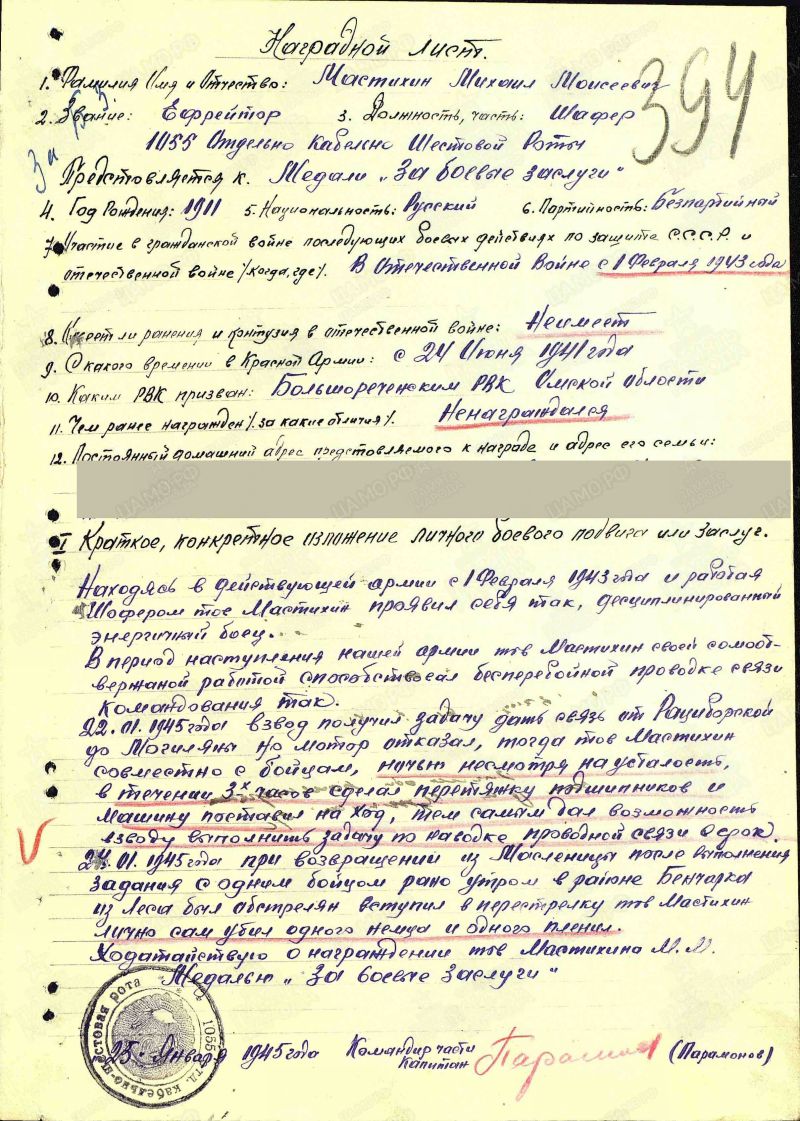 Наградной лист.
394
1. Фамилия Имя и Отчество: Мастихин Михаил Моисеевич
2. Звание: Ефрейтор 3. Должность, часть: Шофер
1055 Отдельно Кабельно Шестовой Роты
Представляется к. Медали „За боевые заслуги“
4. Год Рождения: 1911 5. Национальность: Русский 6. Партийность: Безпартийный
7. Участие в гражданской войне последующих боевых действиях по защите С.С.С.Р. и
отечественной войне /когда, где/. В Отечественной Войне с 1 Февраля 1943 года
8. Имеет ли ранения и контузия в отечественной войне: Неимеет
9. С какого времени в Красной Армии: с 24 Июня 1941 года
10. Каким РВК призван: Большереченским РВК Омской области
11. Чем ранее награжден /. за какие отличия /. Ненаграждался
12. Постоянный домашний адрес представляемого к награде и адрес его семьи:
I Краткое, конкретное изложение личного боевого подвига или заслуг.
Находясь в действующей армии с 1 Февраля 1943 года и работая
Шофером тов Мастихин проявил себя так, десциплинированный
энергичный боец.
В период наступления нашей армии тов Мастихин своей самоот-
вержаной работой способствовал бесперебойной проводке связи
командования так.
22.01.1945 года взвод получил задачу дать связь от Рациборской
до Могиляны но мотор отказал, тогда тов Мастихин
совместно с бойцам, ночью несмотря на усталость,
в течении 3х часов сделал перетяжку подшипников и
машину поставил на ход, тем самым дал возможность
взводу выполнить задачу по наводке проводной связи в срок.
24.01.1945 года при возвращении из Масленицы после выполнения
задания с одним бойцом рано утром в районе Бенчарка
из леса был абстрелян вступил в перестрелку тов Мастихин
лично сам убил одного немца и одного пленил.
Ходатайствую о награждении тов Мастихина М.М.
Медалью „За боевые заслуги“
25. Января 1945 года Командир части
Капитан (Парамонов)